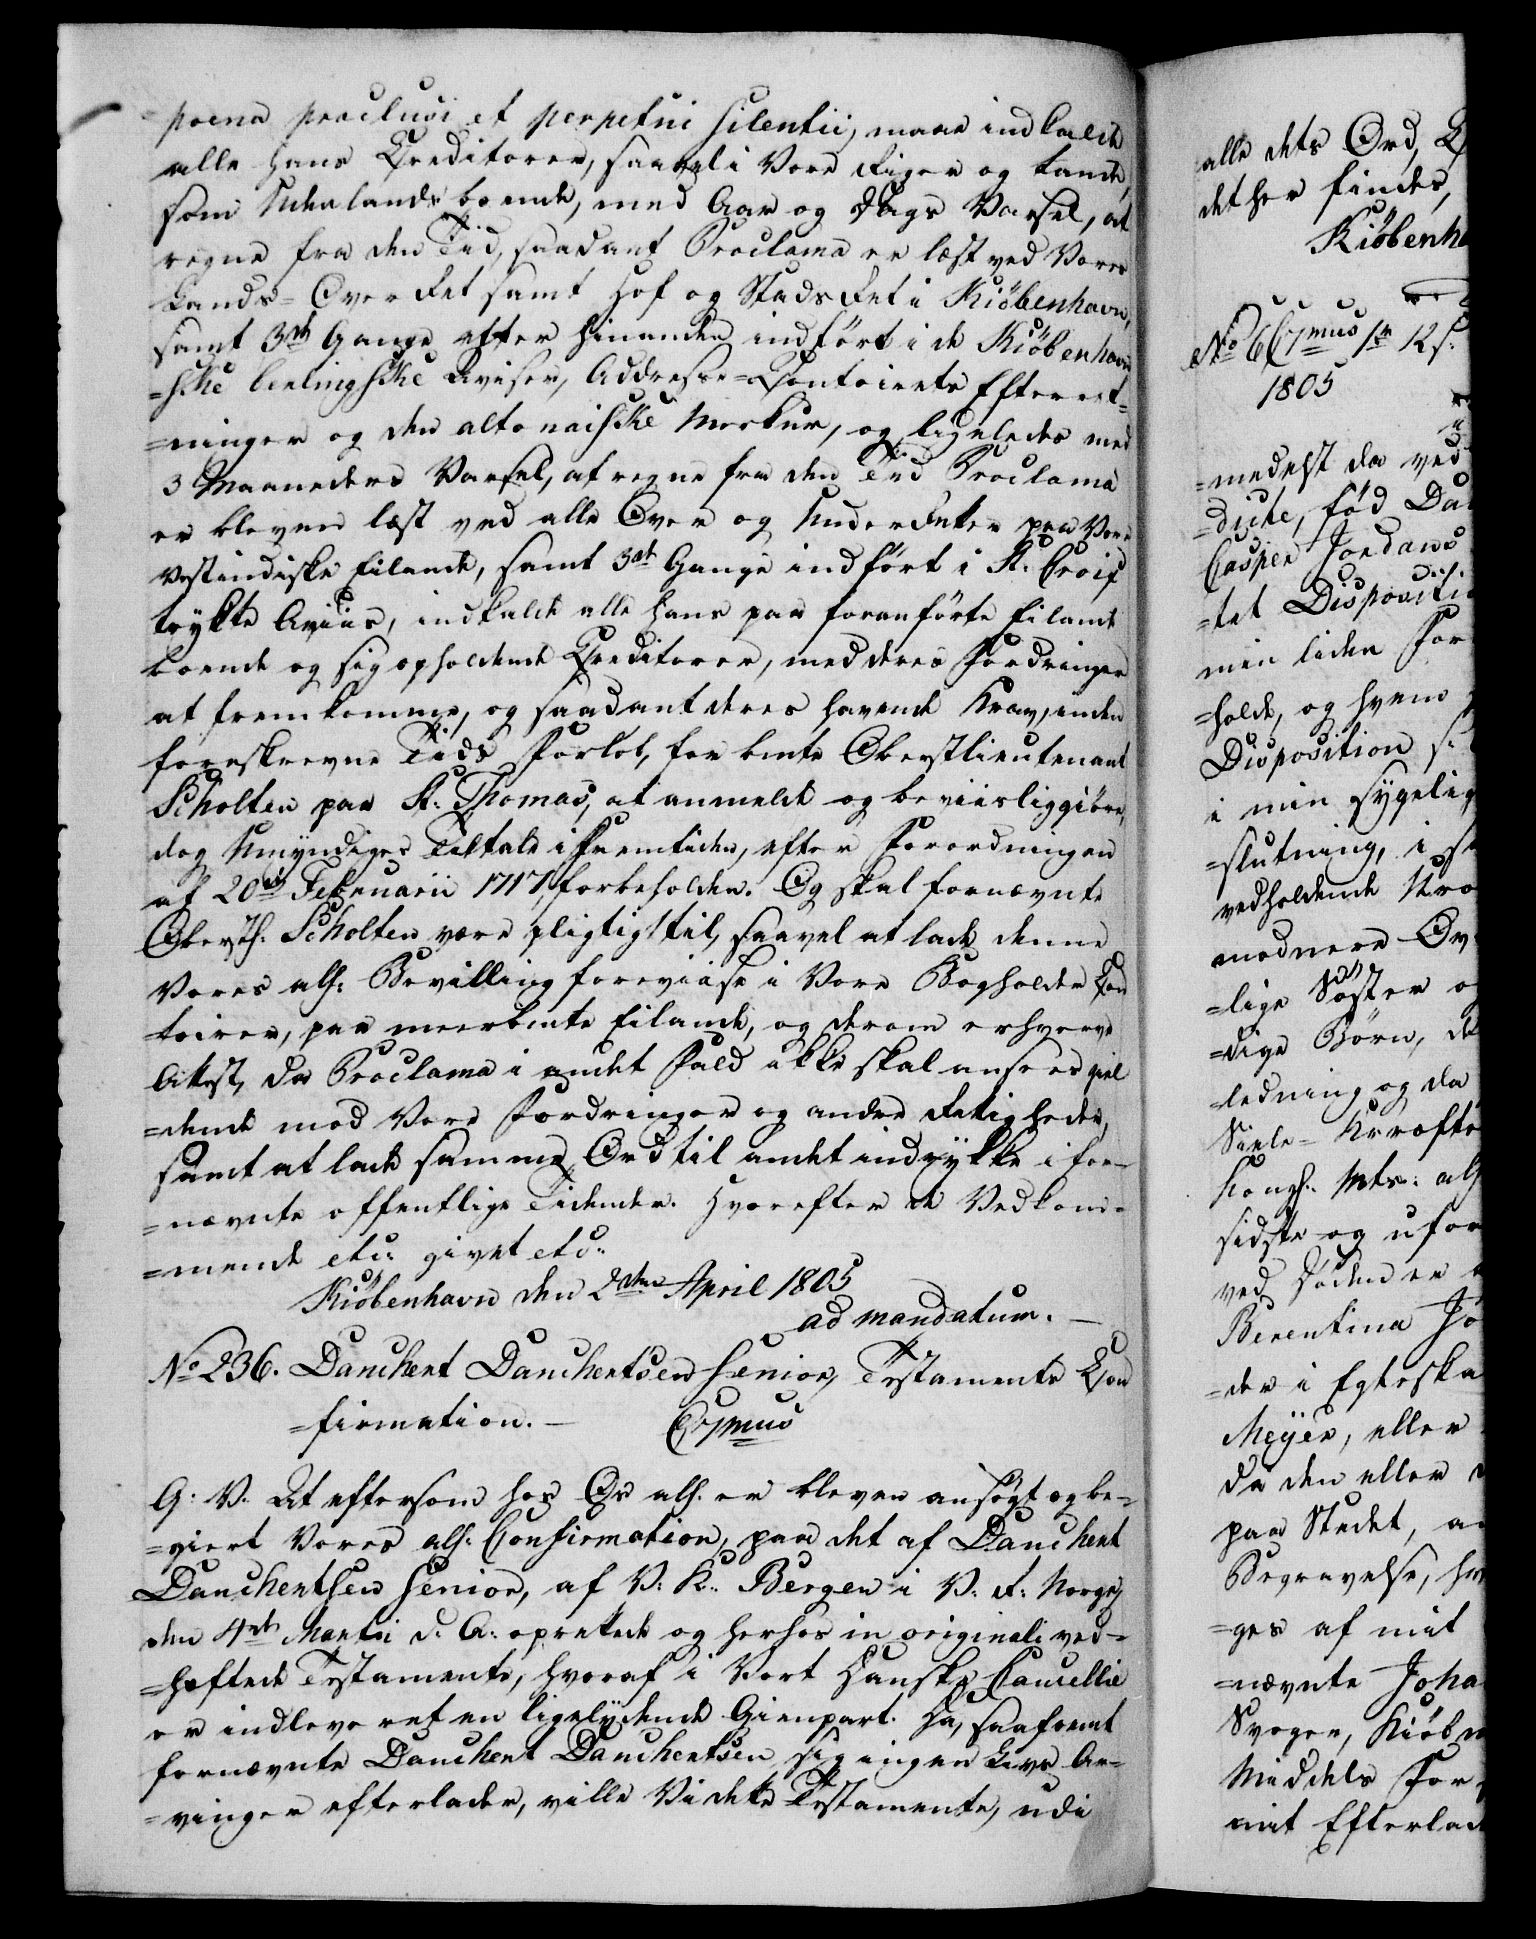 =poena præclusi et perpetui silentii, maae indkalde
alle hans Creditorer, saavel i Vore Riger og Lande,
som Udenlands boende, med Aar og Dags Varsel, at
regne fra den Tid, saadant Proclama er læst ved Vores
Lands= Over Ret samt Hof og Stads Ret i Kiöbenhavn,
samt 3de Gange efter hinanden indfört i de Kiöbenhavn
=ske berlingske Aviser, Addresse=Contoirets Efterret=
=ninger og den altonaiske Merkur, og ligeledes med
3 Maaneders Varsel, at regne fra den Tid Proclama
er bleven læst ved alle Over og Under Retter paa Vore
vestindiske Eilande, samt 3de Gange indfört i St. Croix
trykte Aviis, indkalde alle hans paa foranförte Eilande
boende og sig opholdende Creditorer, med deres Fordringer
at fremkomme, og saadant deres havende Krav, inden
foreskrevne Tids Forlöb, for bemte Oberstlieutenant
Scholten paa St. Thomas, at anmelde og beviisliggiöre,
dog Umyndiges Tiltale i Fremtiden, efter Forordningen
af 20de Februarii 1717, forbeholden. Og skal fornævnte
Oberstl. Scholten være pligtig til, saavel at lade denne
Vores all: Bevilling foreviise i Vore Bogholder Con
toirer, paa meerbemte Eilande, og derom erhverve
Attest, da Proclama i andet Fald ikke skal ansees giel
=dende mod Vore Fordringer og andre Rettigheder,
samt at lade samme, Ord til andet indrykke i for=
=nævnte offentlige Tidender. Hvorefter de Vedkom=
=mende etc: givet etc:
Kiöbenhavn den 2den April 1805
ad mandatum. —
No 236. Danchert Danchertsen Senior, Testaments Con
=firmation. — Grmus
G: V. At eftersom hos Os all. er bleven ansögt og be=
=giert Vores all: Confirmation, paa det af Danchert
Danchertsen Senior, af V: K: Bergen i V. R: Norge,
den 4de Martii d: A: oprettede og herhos in originali ved=
=hæftede Testamente, hvoraf i Vort Danske Cancellie
er indleveret en ligelydende Gienpart. Da, saafremt
fornævnte Danchert Danchertsen sig ingen Livs Ar=
=vinger efterlader, ville Vi dette Testamente, udi
alle dets Ord,
det her findes,
Kiöbenh
1805
=medelst da ved
=dicte, föd Da
Casper Jordans
=tet Dispositi
min liden For
=holde, og hvem
Disposition
i min sygelig
=slutning,
vedholdende
=lige Söster
=dige Börn,
=ledning og da
Siele= Kræfte
Kongl. Mts: all
sidste og
ved Döden er
Berentina Jo
=der i Egteska
Meyer, eller
da den eller
paa Stedet,
Begravelse,
=ges af mit
=nævnte Joha
Svoger, Kiöbm
Middels For
mit Efterlad